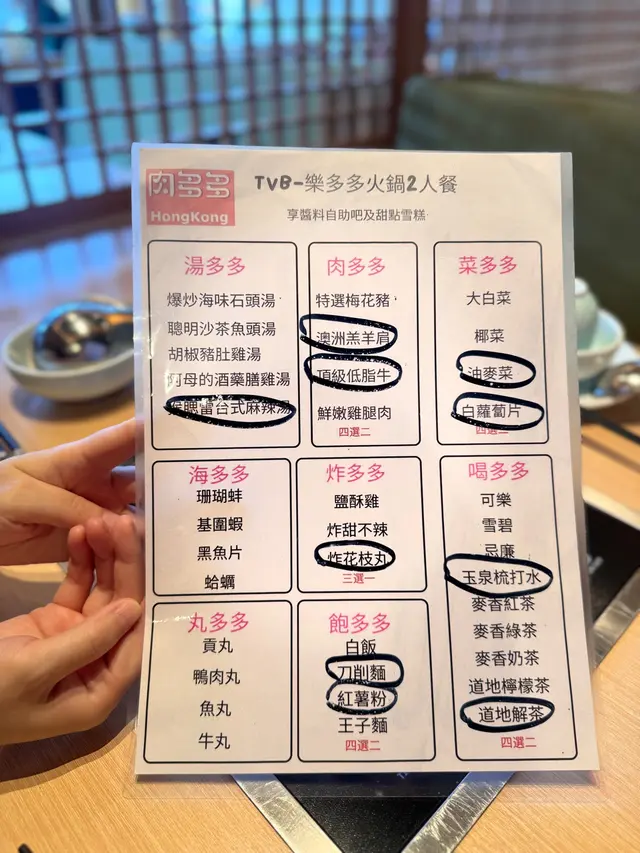 肉多多
HongKong
TVB-樂多多火鍋2人餐
享醬料自助吧及甜點雪糕
湯多多
爆炒海味石頭湯
聰明沙茶魚頭湯
胡椒豬肚雞湯
阿母的酒藥膳雞湯
台式麻辣湯
肉多多
特選梅花豬
澳洲羔羊肩
頂級低脂牛
鮮嫩雞腿肉
四選二
菜多多
大白菜
椰菜
油麥菜
白蘿蔔片
四選二
海多多
珊瑚蚌
基圍蝦
黑魚片
蛤蠣
炸多多
鹽酥雞
炸甜不辣
炸花枝丸
三選一
喝多多
可樂
雪碧
忌廉
玉泉梳打水
麥香紅茶
麥香綠茶
麥香奶茶
道地檸檬茶
道地解茶
四選二
丸多多
貢丸
鴨肉丸
魚丸
牛丸
飽多多
白飯
刀削麵
紅薯粉
王子麵
四選二